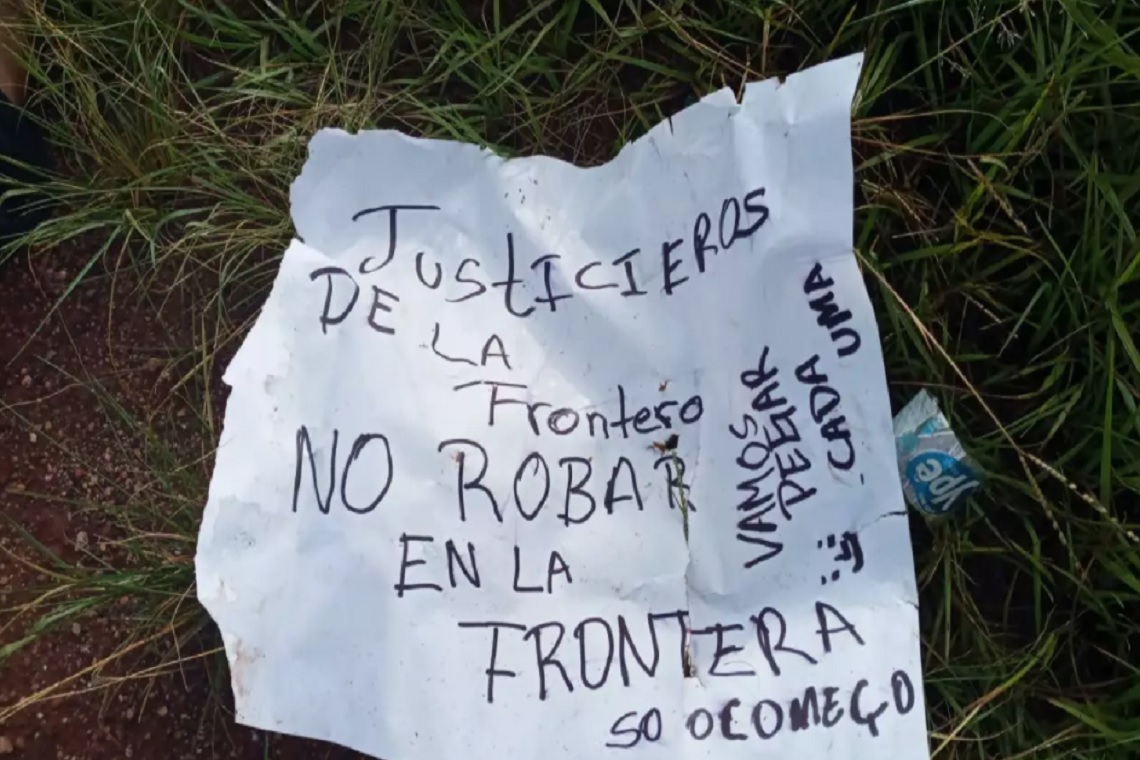 JUStICIEROS
DE
LA
Frontero
NO ROBAR
EN LA
FRONTERA
SO OCOMEÇO
VAMOS
PEGAR
CADA UMA
ype